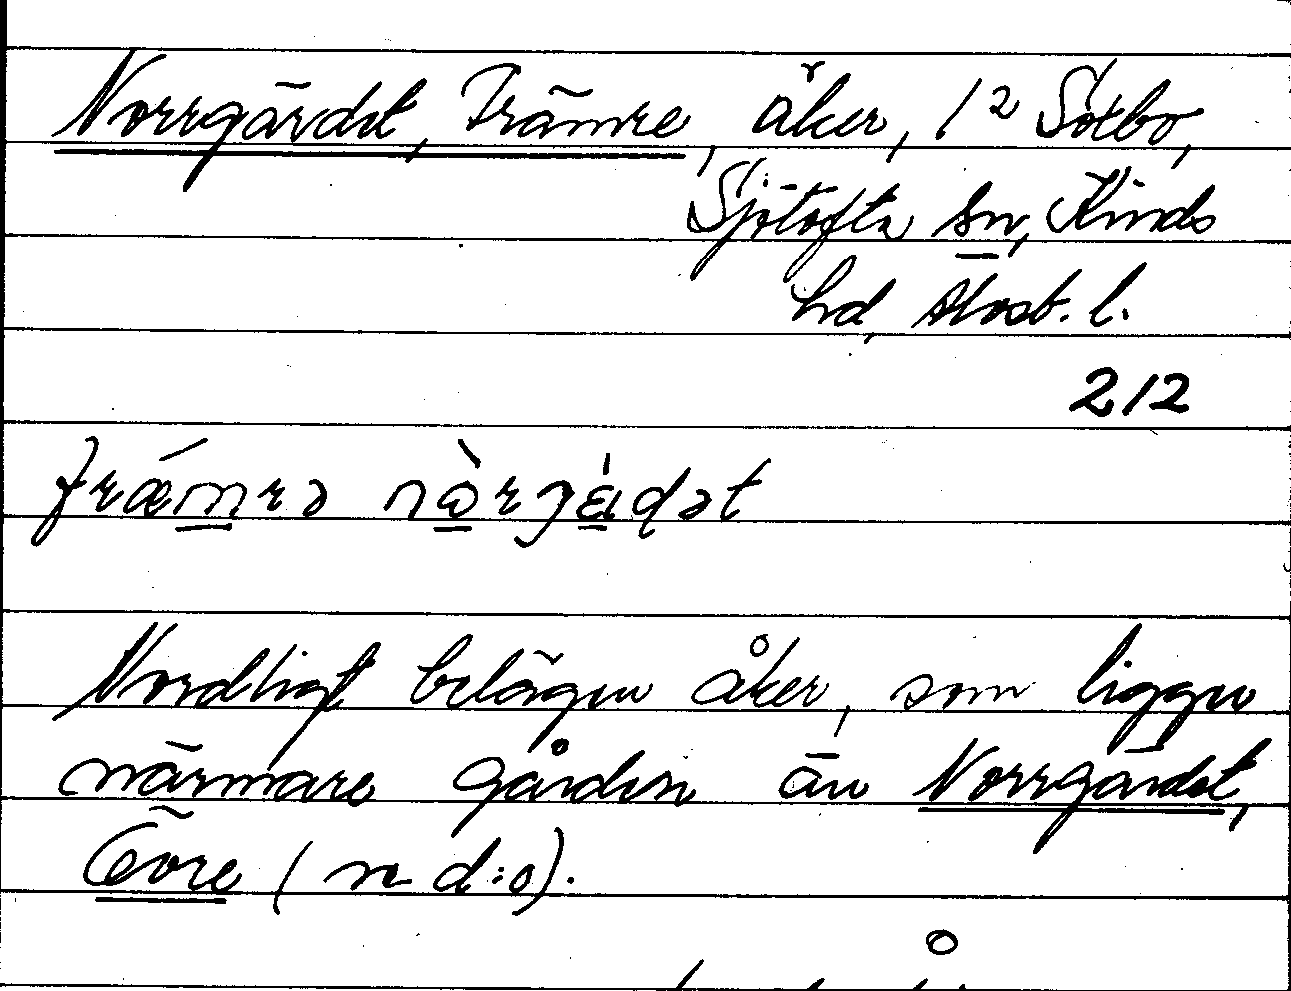 Norrgärdet, Främre, åker, 1² Sötbo,
Sjötofta sn, Kinds
hd, Älvsb. l.
212
fræ´mrə nòrgɛ̀dət
Nordligt belägen åker, som ligger
närmare gården än Norrgärdet,
Övre (se d:o).